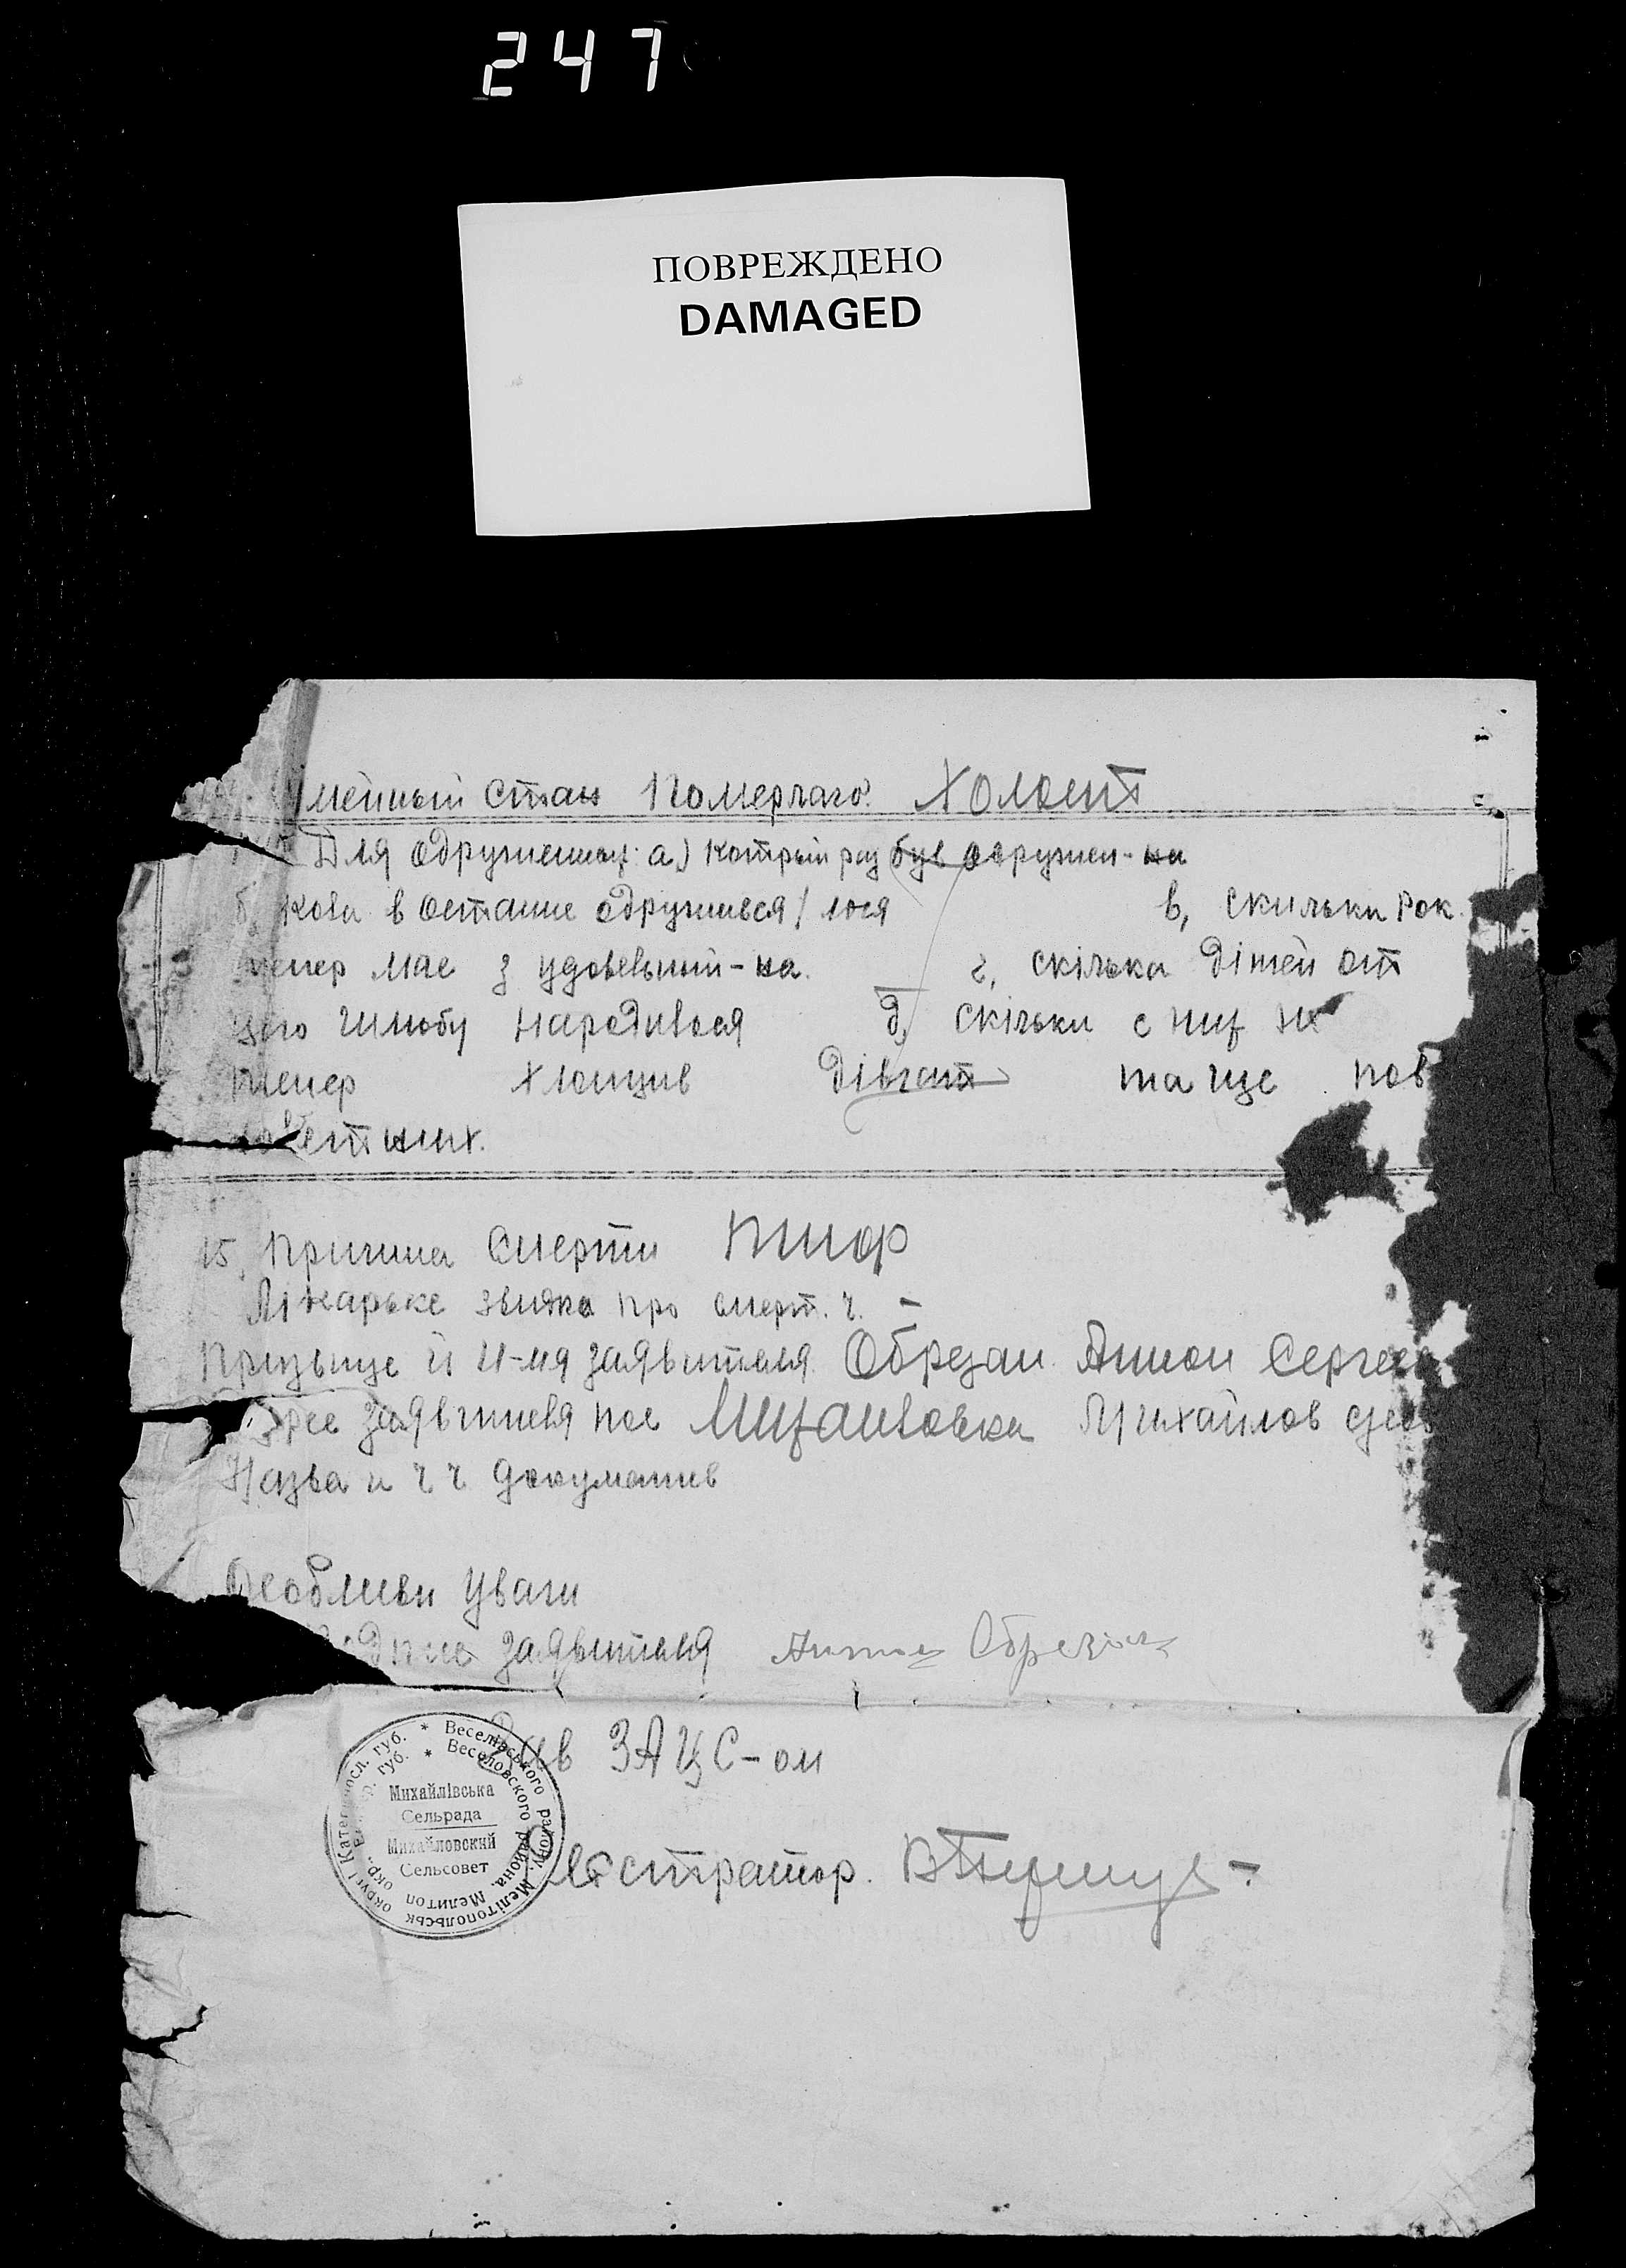 247
ПОВРЕЖДЕНО
DAMAGED
мейный стан Померлаго Холост
Для одруженных: а) Котрый раз був одружен-на
б, Коли в останне одружився/лося в, скильки Рок
тепер мае з удовевший-на. г, скілька дітей от
цего шлюбу народилося д, скільки с них
тепер хлопцив дівчат та ще пов
летних.
15, Причина Смерти
Лікарьке звидка про смерт. ч. -
Призвище й и-мя заявителя Обрезан Антон Сергее
заявителя пос Михайловка Михайлов
Назва и ч ч документив
Особливи Уваги
заявителя Антон Обрезан
Зав ЗАЦС-ом
Регистратор.
* Веселівського району, Мелітопольськ округі Катериносл. губ.
* Веселовского района, Мелитоп окр. губ.
Михайлівська
Сельрада
Михайловский
Сельсовет